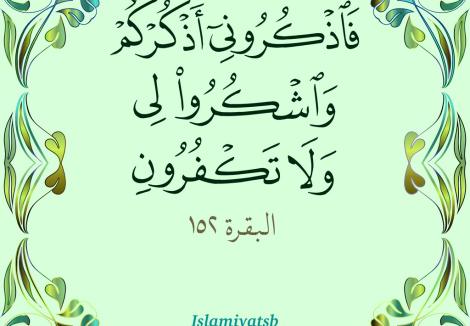 فَٱذۡكُرُونِيٓ أَذۡكُرۡكُمۡ
وَٱشۡكُرُواْ لِي
وَلَا تَكۡفُرُونِ
البقرة ١٥٢
Islamiyatsb